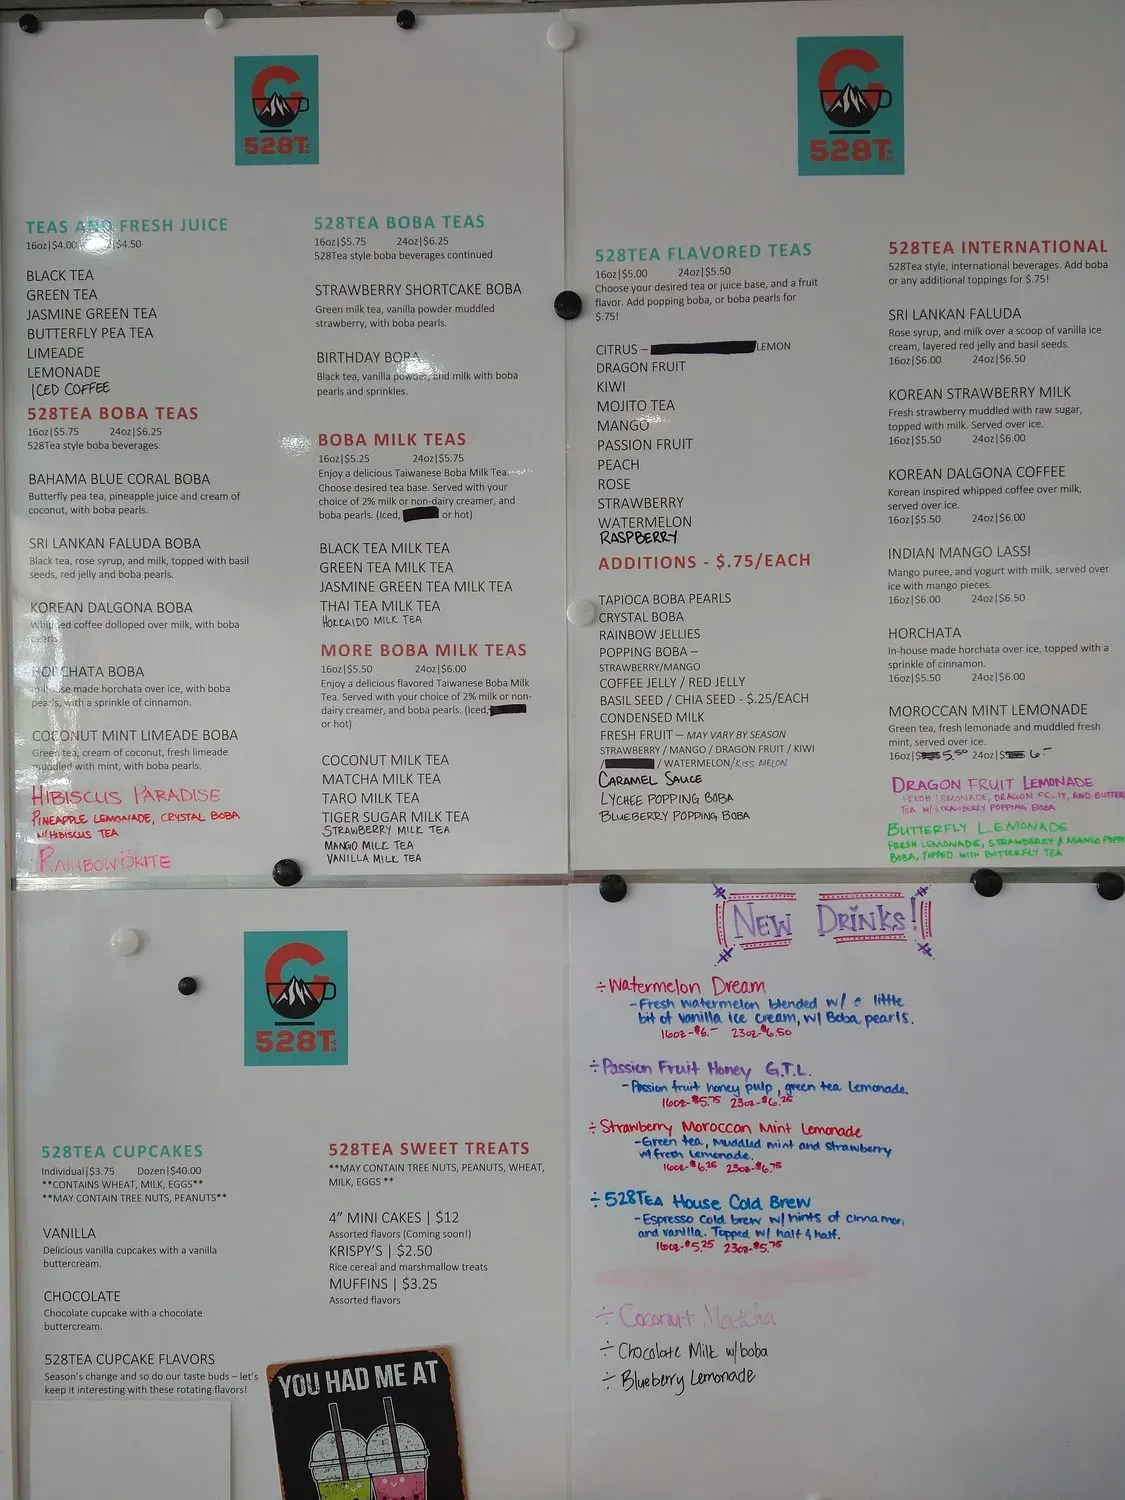 528TEA
TEAS AND FRESH JUICE
16oz|$4.00 $4.50
BLACK TEA
GREEN TEA
JASMINE GREEN TEA
BUTTERFLY PEA TEA
LIMEADE
LEMONADE
ICED COFFEE
528TEA BOBA TEAS
16oz|$5.75 24oz|$6.25
528Tea style boba beverages.
BAHAMA BLUE CORAL BOBA
Butterfly pea tea, pineapple juice and cream of
coconut, with boba pearls.
SRI LANKAN FALUDA BOBA
Black tea, rose syrup, and milk, topped with basil
seeds, red jelly and boba pearls.
KOREAN DALGONA BOBA
Whipped coffee dolloped over milk, with boba
pearls.
HORCHATA BOBA
In-house made horchata over ice, with boba
pearls, with a sprinkle of cinnamon.
COCONUT MINT LIMEADE BOBA
Green tea, cream of coconut, fresh limeade
muddled with mint, with boba pearls.
HIBISCUS PARADISE
PINEAPPLE LEMONADE, CRYSTAL BOBA
W/HIBISCUS TEA
RAINBOW BRITE
528TEA BOBA TEAS
16oz|$5.75 24oz|$6.25
528Tea style boba beverages continued
STRAWBERRY SHORTCAKE BOBA
Green milk tea, vanilla powder muddled
strawberry, with boba pearls.
BIRTHDAY BOBA
Black tea, vanilla powder, and milk with boba
pearls and sprinkles.
BOBA MILK TEAS
16oz|$5.25 24oz|$5.75
Enjoy a delicious Taiwanese Boba Milk Tea.
Choose desired tea base. Served with your
choice of 2% milk or non-dairy creamer, and
boba pearls. (Iced, or hot)
BLACK TEA MILK TEA
GREEN TEA MILK TEA
JASMINE GREEN TEA MILK TEA
THAI TEA MILK TEA
HOKKAIDO MILK TEA
MORE BOBA MILK TEAS
16oz|$5.50 24oz|$6.00
Enjoy a delicious flavored Taiwanese Boba Milk
Tea. Served with your choice of 2% milk or non-
dairy creamer, and boba pearls. (Iced,
or hot)
COCONUT MILK TEA
MATCHA MILK TEA
TARO MILK TEA
TIGER SUGAR MILK TEA
STRAWBERRY MILK TEA
MANGO MILK TEA
VANILLA MILK TEA
528TEA
528TEA FLAVORED TEAS
16oz|$5.00 24oz|$5.50
Choose your desired tea or juice base, and a fruit
flavor. Add popping boba, or boba pearls for
$.75!
CITRUS – LEMON
DRAGON FRUIT
KIWI
MOJITO TEA
MANGO
PASSION FRUIT
PEACH
ROSE
STRAWBERRY
WATERMELON
RASPBERRY
ADDITIONS - $.75/EACH
TAPIOCA BOBA PEARLS
CRYSTAL BOBA
RAINBOW JELLIES
POPPING BOBA –
STRAWBERRY/MANGO
COFFEE JELLY / RED JELLY
BASIL SEED / CHIA SEED - $.25/EACH
CONDENSED MILK
FRESH FRUIT – MAY VARY BY SEASON
STRAWBERRY / MANGO / DRAGON FRUIT / KIWI
/ / WATERMELON/KISS MELON
CARAMEL SAUCE
LYCHEE POPPING BOBA
BLUEBERRY POPPING BOBA
528TEA INTERNATIONAL
528Tea style, international beverages. Add boba
or any additional toppings for $.75!
SRI LANKAN FALUDA
Rose syrup, and milk over a scoop of vanilla ice
cream, layered red jelly and basil seeds.
16oz|$6.00 24oz|$6.50
KOREAN STRAWBERRY MILK
Fresh strawberry muddled with raw sugar,
topped with milk. Served over ice.
16oz|$5.50 24oz|$6.00
KOREAN DALGONA COFFEE
Korean inspired whipped coffee over milk,
served over ice.
16oz|$5.50 24oz|$6.00
INDIAN MANGO LASSI
Mango puree, and yogurt with milk, served over
ice with mango pieces.
16oz|$6.00 24oz|$6.50
HORCHATA
In-house made horchata over ice, topped with a
sprinkle of cinnamon.
16oz|$5.50 24oz|$6.00
MOROCCAN MINT LEMONADE
Green tea, fresh lemonade and muddled fresh
mint, served over ice.
16oz|$ 5.50 24oz|$ 6.-
DRAGON FRUIT LEMONADE
FRESH LEMONADE, DRAGON FRUIT, AND BUTTER
TEA W/ STRAWBERRY POPPING BOBA
BUTTERFLY LEMONADE
FRESH LEMONADE, STRAWBERRY & MANGO POPP
BOBA, TOPPED WITH BUTTERFLY TEA
528TEA
528TEA CUPCAKES
Individual|$3.75 Dozen|$40.00
**CONTAINS WHEAT, MILK, EGGS**
**MAY CONTAIN TREE NUTS, PEANUTS**
VANILLA
Delicious vanilla cupcakes with a vanilla
buttercream.
CHOCOLATE
Chocolate cupcake with a chocolate
buttercream.
528TEA CUPCAKE FLAVORS
Season's change and so do our taste buds – let's
keep it interesting with these rotating flavors!
528TEA SWEET TREATS
**MAY CONTAIN TREE NUTS, PEANUTS, WHEAT,
MILK, EGGS **
4" MINI CAKES | $12
Assorted flavors (Coming soon!)
KRISPY'S | $2.50
Rice cereal and marshmallow treats
MUFFINS | $3.25
Assorted flavors
YOU HAD ME AT
NEW DRINKS!
÷ Watermelon Dream
- Fresh watermelon blended w/ a little
bit of vanilla ice cream, w/ Boba pearls.
16oz-$6.- 23oz-$6.50
÷ Passion Fruit Honey G.T.L.
- Passion fruit honey pulp, green tea Lemonade.
16oz-$5.75 23oz-$6.25
÷ Strawberry Moroccan Mint Lemonade
- Green tea, Muddled mint and Strawberry
w/ fresh Lemonade.
16oz-$6.25 23oz-$6.75
÷ 528TEA House Cold Brew
- Espresso cold brew w/ hints of cinnamon,
and vanilla. Topped w/ half & half.
16oz-$5.25 23oz-$5.75
÷ Coconut Matcha
÷ Chocolate Milk w/boba
÷ Blueberry Lemonade